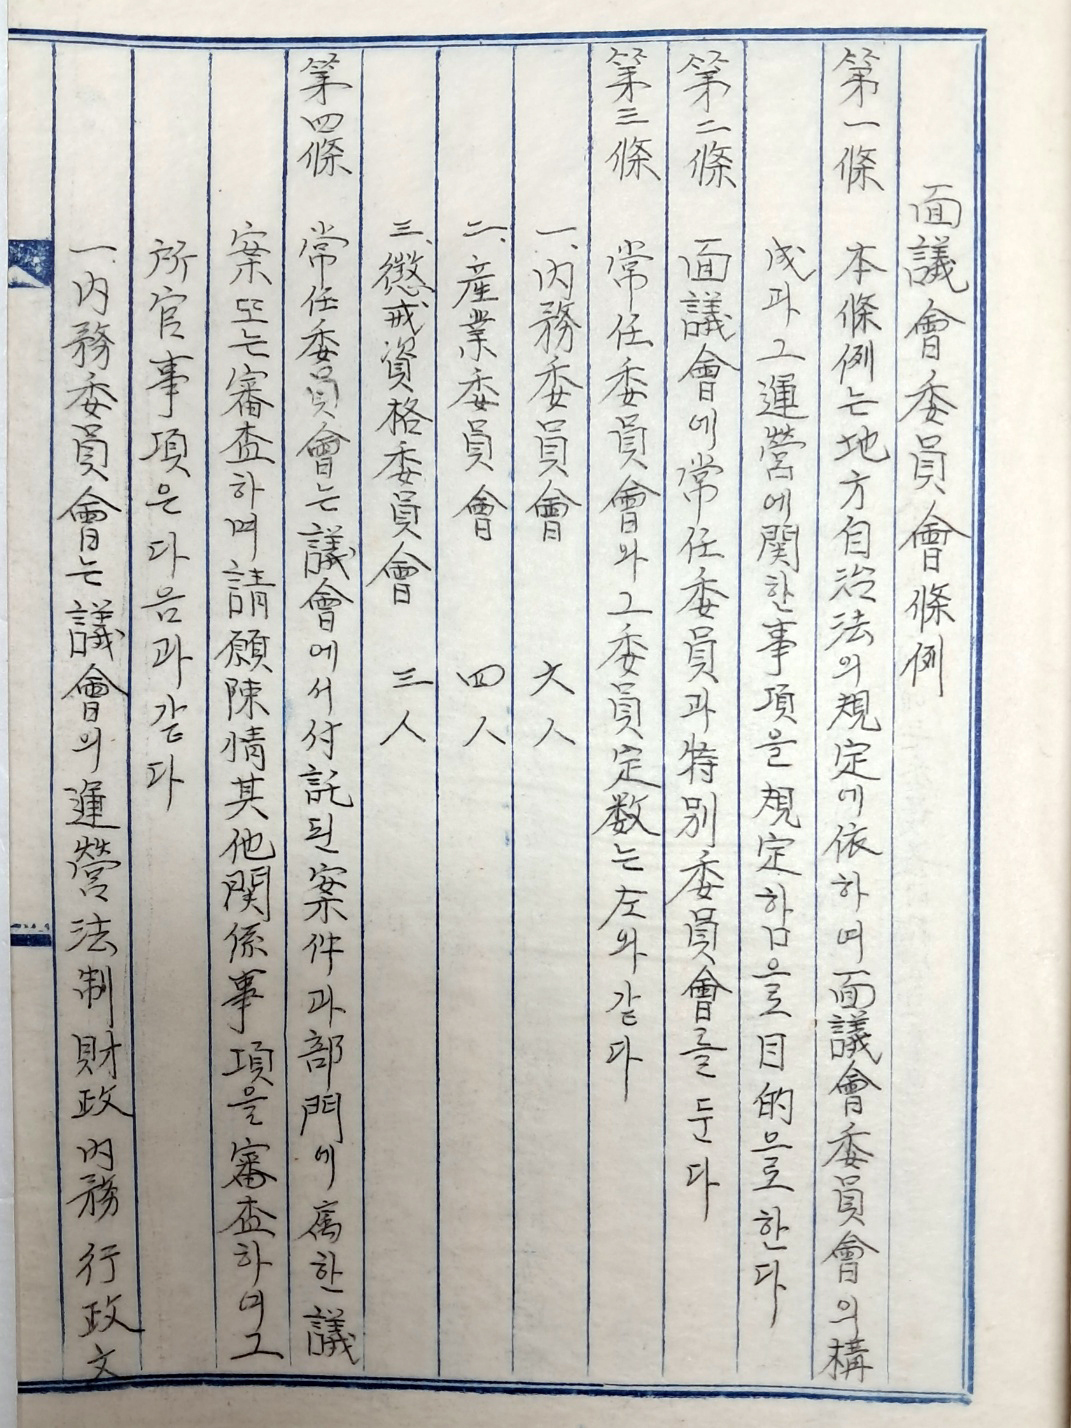 面議會委員會條例
第一條 本條例는地方自治法의規定에依하며面議會委員會의構
成과그運營에関한事項을規定함으로目的으로한다
第二條 面議會에常任委員과特別委員會를둔다
第三條 常任委員會와그委員定数는左와같다
一、内務委員會 六人
二、産業委員會 四人
三、懲戒資格委員會 三人
第四條 常任委員會는議會에서付託된案件과部門에属한議
案또는審査하며請願陳情其他関係事項을審査하며그
所官事項은다음과같다
一、内務委員會는議會의運營法制財政内務行政文